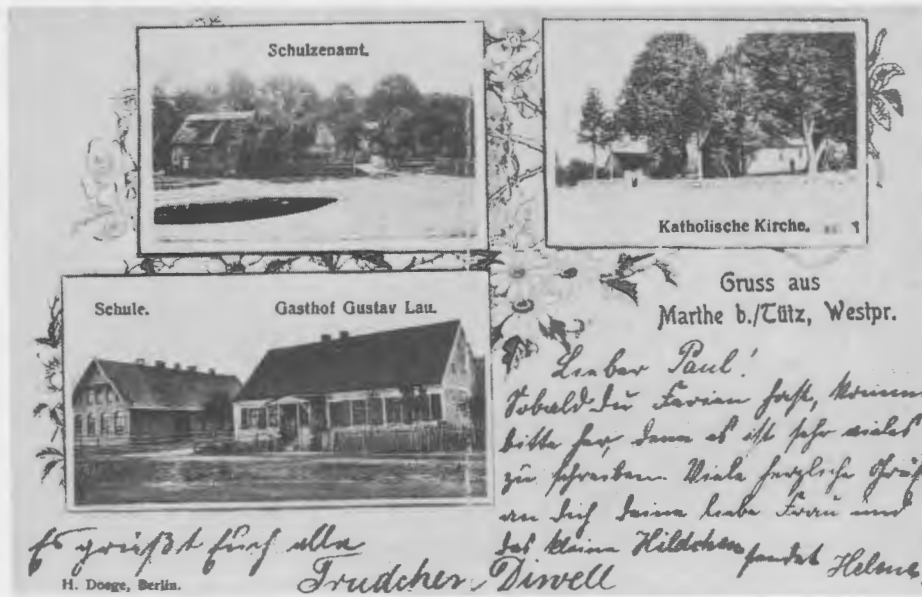 Schulzenamt.
Katholische Kirche.
Schule.
Gasthof Gustav Lau.
Gruss aus
Marthe b./Tütz, Westpr.
Lieber Paul!
Sobald du Ferien hast, komme
bitte her, denn es ist sehr vieles
zu schreiben. Viele herzliche Grüß
an dich deine liebe Frau und
das kleine Hildchen sendet Helene
Es grüßt Euch alle
Trudchen
H. Dooge, Berlin.